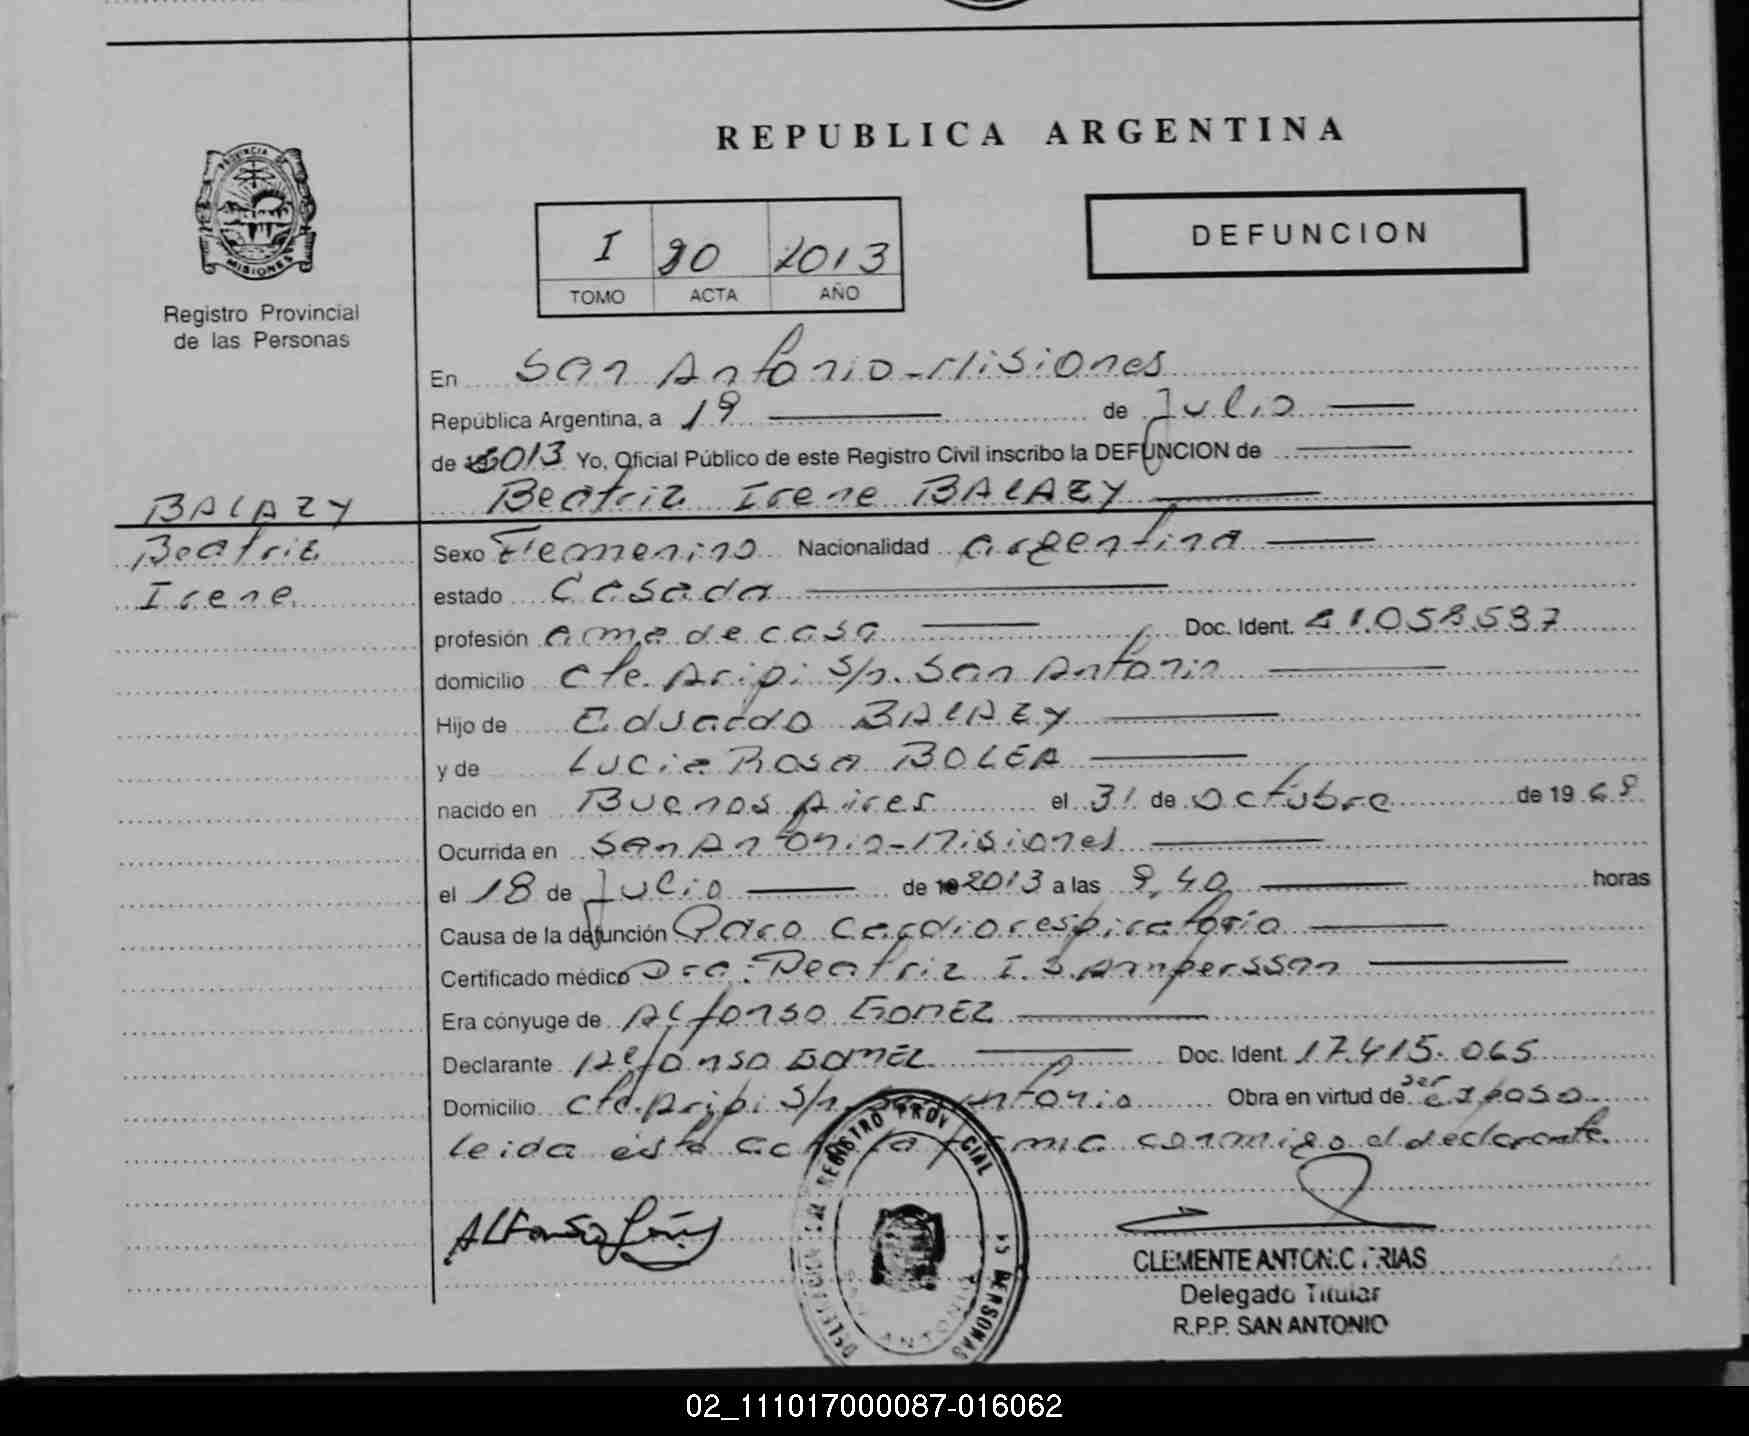 REPUBLICA ARGENTINA
PROVINCIA DE
MISIONES
Registro Provincial
de las Personas
DEFUNCION
I 90 2013
TOMO ACTA AÑO
En San Antonio - Misiones
República Argentina, a 19 de Julio
de 2013 Yo, Oficial Público de este Registro Civil inscribo la DEFUNCION de
Beatriz Irene BALAZY
BALAZY
Beatriz
Irene
Sexo Femenino Nacionalidad argentina
estado Casada
profesión ama de casa Doc. Ident. 21.058.587
domicilio Cte. Aripi s/n. San Antonio
Hijo de Eduardo BALAZY
y de Lucia Rosa BOLEA
nacido en Buenos Aires el 31 de Octubre de 1969
Ocurrida en San Antonio - Misiones
el 18 de Julio de 2013 a las 9,40 horas
Causa de la defunción Paro Cardiorespiratorio
Certificado médico Dra. Beatriz I. S. Ampersson
Era cónyuge de Alfonso GOMEZ
Declarante Alfonso GOMEZ Doc. Ident. 17.415.065
Domicilio Cte. Aripi s/n. San Antonio Obra en virtud de ser esposo
leida esta acta la firma conmigo el declarante.
REGISTRO PROVINCIAL
PERSONAS
SAN ANTONIO
CLEMENTE ANTONIO FRIAS
Delegado Titular
R.P.P. SAN ANTONIO
02_111017000087-016062